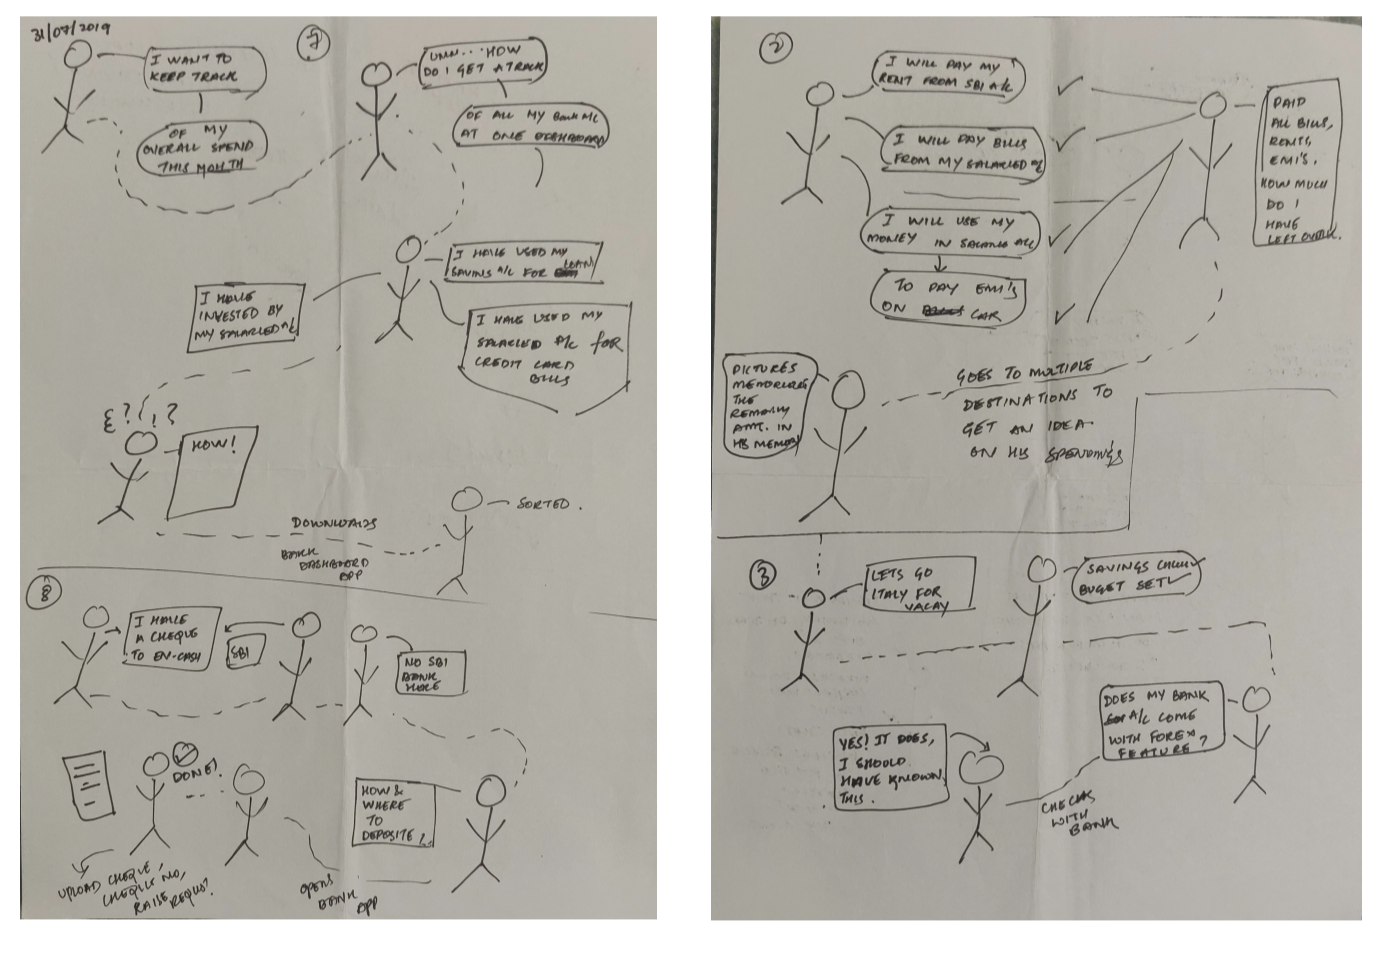 31/07/2019
7
I WANT TO
KEEP TRACK
OF MY
OVERALL SPEND
THIS MONTH
UMM... HOW
DO I GET A TRACK
OF ALL MY BANK A/C
AT ONE DASHBOARD
I HAVE USED MY
SAVINGS A/C FOR LOAN
I HAVE
INVESTED BY
MY SALARIED A/C
I HAVE USED MY
SALARIED A/C FOR
CREDIT CARD
BILLS
? ! , ?
HOW!
DOWNLOADS
BANK
DASHBOARD
APP
SORTED.
8
I HAVE
A CHEQUE
TO EN-CASH
SBI
NO SBI
BANK
HERE
HOW &
WHERE
TO
DEPOSITE
OPENS
BANK
APP
DONE!
UPLOAD CHEQUE,
CHEQUE NO,
RAISE REQUEST.
2
I WILL PAY MY
RENT FROM SBI A/C
I WILL PAY BILLS
FROM MY SALARIED A/C
I WILL USE MY
MONEY IN SAVINGS A/C
TO PAY EMI'S
ON CAR
PAID
ALL BILLS,
RENTS,
EMI'S.
HOW MUCH
DO I
HAVE
LEFT OVER.
GOES TO MULTIPLE
DESTINATIONS TO
GET AN IDEA
ON HIS SPENDINGS
PICTURES
MEMORIZES
THE
REMAINING
AMT. IN
HIS MEMORY
3
LETS GO
ITALY FOR
VACAY
SAVINGS CHECK
BUGET SET
DOES MY BANK
A/C COME
WITH FOREX
FEATURE?
CHECKS
WITH
BANK
YES! IT DOES,
I SHOULD
HAVE KNOWN
THIS.